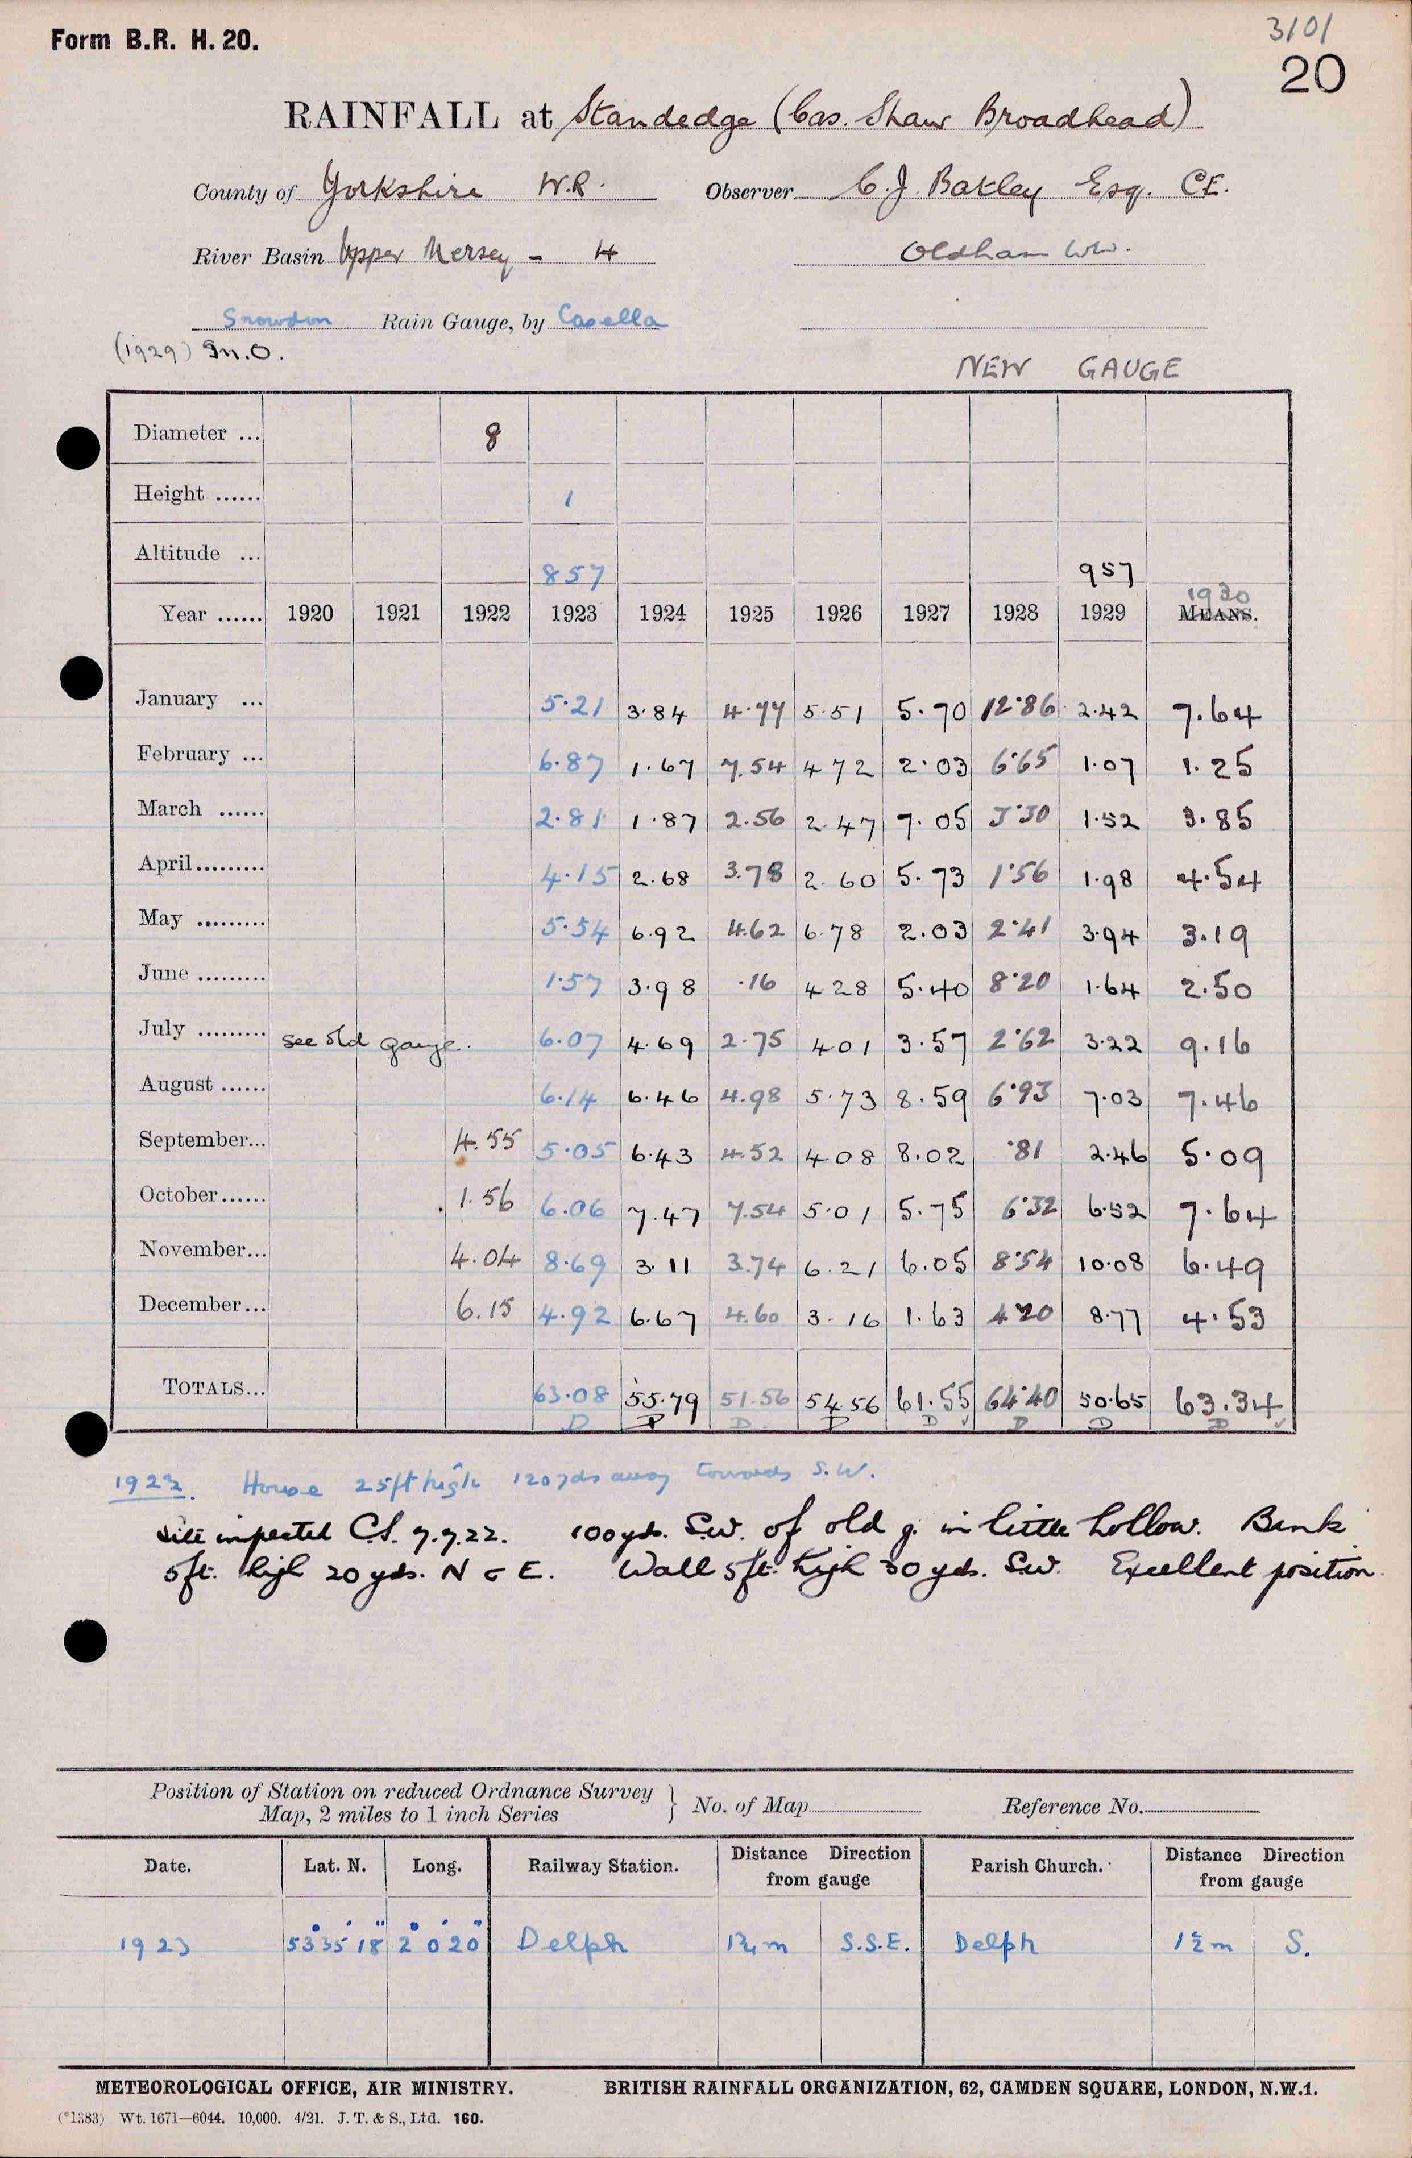 Form B.R. H. 20.
3101
20
RAINFALL at Standedge (Cas. Shaw Broadhead)
County of Yorkshire W.R. Observer C. J. Batley Esq. C.E.
River Basin Upper Mersey - H Oldham WW.
Snowdon Rain Gauge, by Casella
(1929) M.O.
NEW GAUGE
Diameter ... 8
Height ...... 1
Altitude ... 857 957
1930
Year ...... 1920 1921 1922 1923 1924 1925 1926 1927 1928 1929 MEANS.
January ... 5.21 3.84 4.77 5.51 5.70 12.86 2.42 7.64
February ... 6.87 1.67 7.54 4 72 2.03 6.65 1.07 1.25
March ...... 2.81 1.87 2.56 2.47 7.05 3.30 1.52 3.85
April......... 4.15 2.68 3.78 2.60 5.73 1.56 1.98 4.54
May ......... 5.54 6.92 4.62 6.78 2.03 2.41 3.94 3.19
June ......... 1.57 3.98 .16 4 28 5.40 8.20 1.64 2.50
July ......... see old gauge. 6.07 4.69 2.75 4 01 3.57 2.62 3.22 9.16
August ...... 6.14 6.46 4.98 5.73 8.59 6.93 7.03 7.46
September... 4.55 5.05 6.43 4.52 4 08 8.02 .81 2.46 5.09
October...... 1.56 6.06 7.47 7.54 5.01 5.75 6.32 6.52 7.64
November... 4.04 8.69 3.11 3.74 6.21 6.05 8.54 10.08 6.49
December... 6.15 4.92 6.67 4.60 3.16 1.63 4.20 8.77 4.53
TOTALS... 63.08 55.79 51.56 54.56 61.55 64.40 50.65 63.34
D D D D D D D D
1923. House 25ft high 120yds away towards S.W.
Site inspected C.S. 7.9.22. 100yds. S.W. of old g. in little hollow. Bank
5ft. high 20yds. N & E. Wall 5ft. high 30yds. S.W. Excellent position
Position of Station on reduced Ordnance Survey
Map, 2 miles to 1 inch Series } No. of Map Reference No.
Date. Lat. N. Long. Railway Station. Distance from gauge Direction Parish Church. Distance from gauge Direction
1923 53° 35' 18" 2° 0' 20" Delph 1¾m S.S.E. Delph 1½m S.
METEOROLOGICAL OFFICE, AIR MINISTRY. BRITISH RAINFALL ORGANIZATION, 62, CAMDEN SQUARE, LONDON, N.W.1.
(*1383) Wt. 1671—6044. 10,000. 4/21. J. T. & S., Ltd. 160.